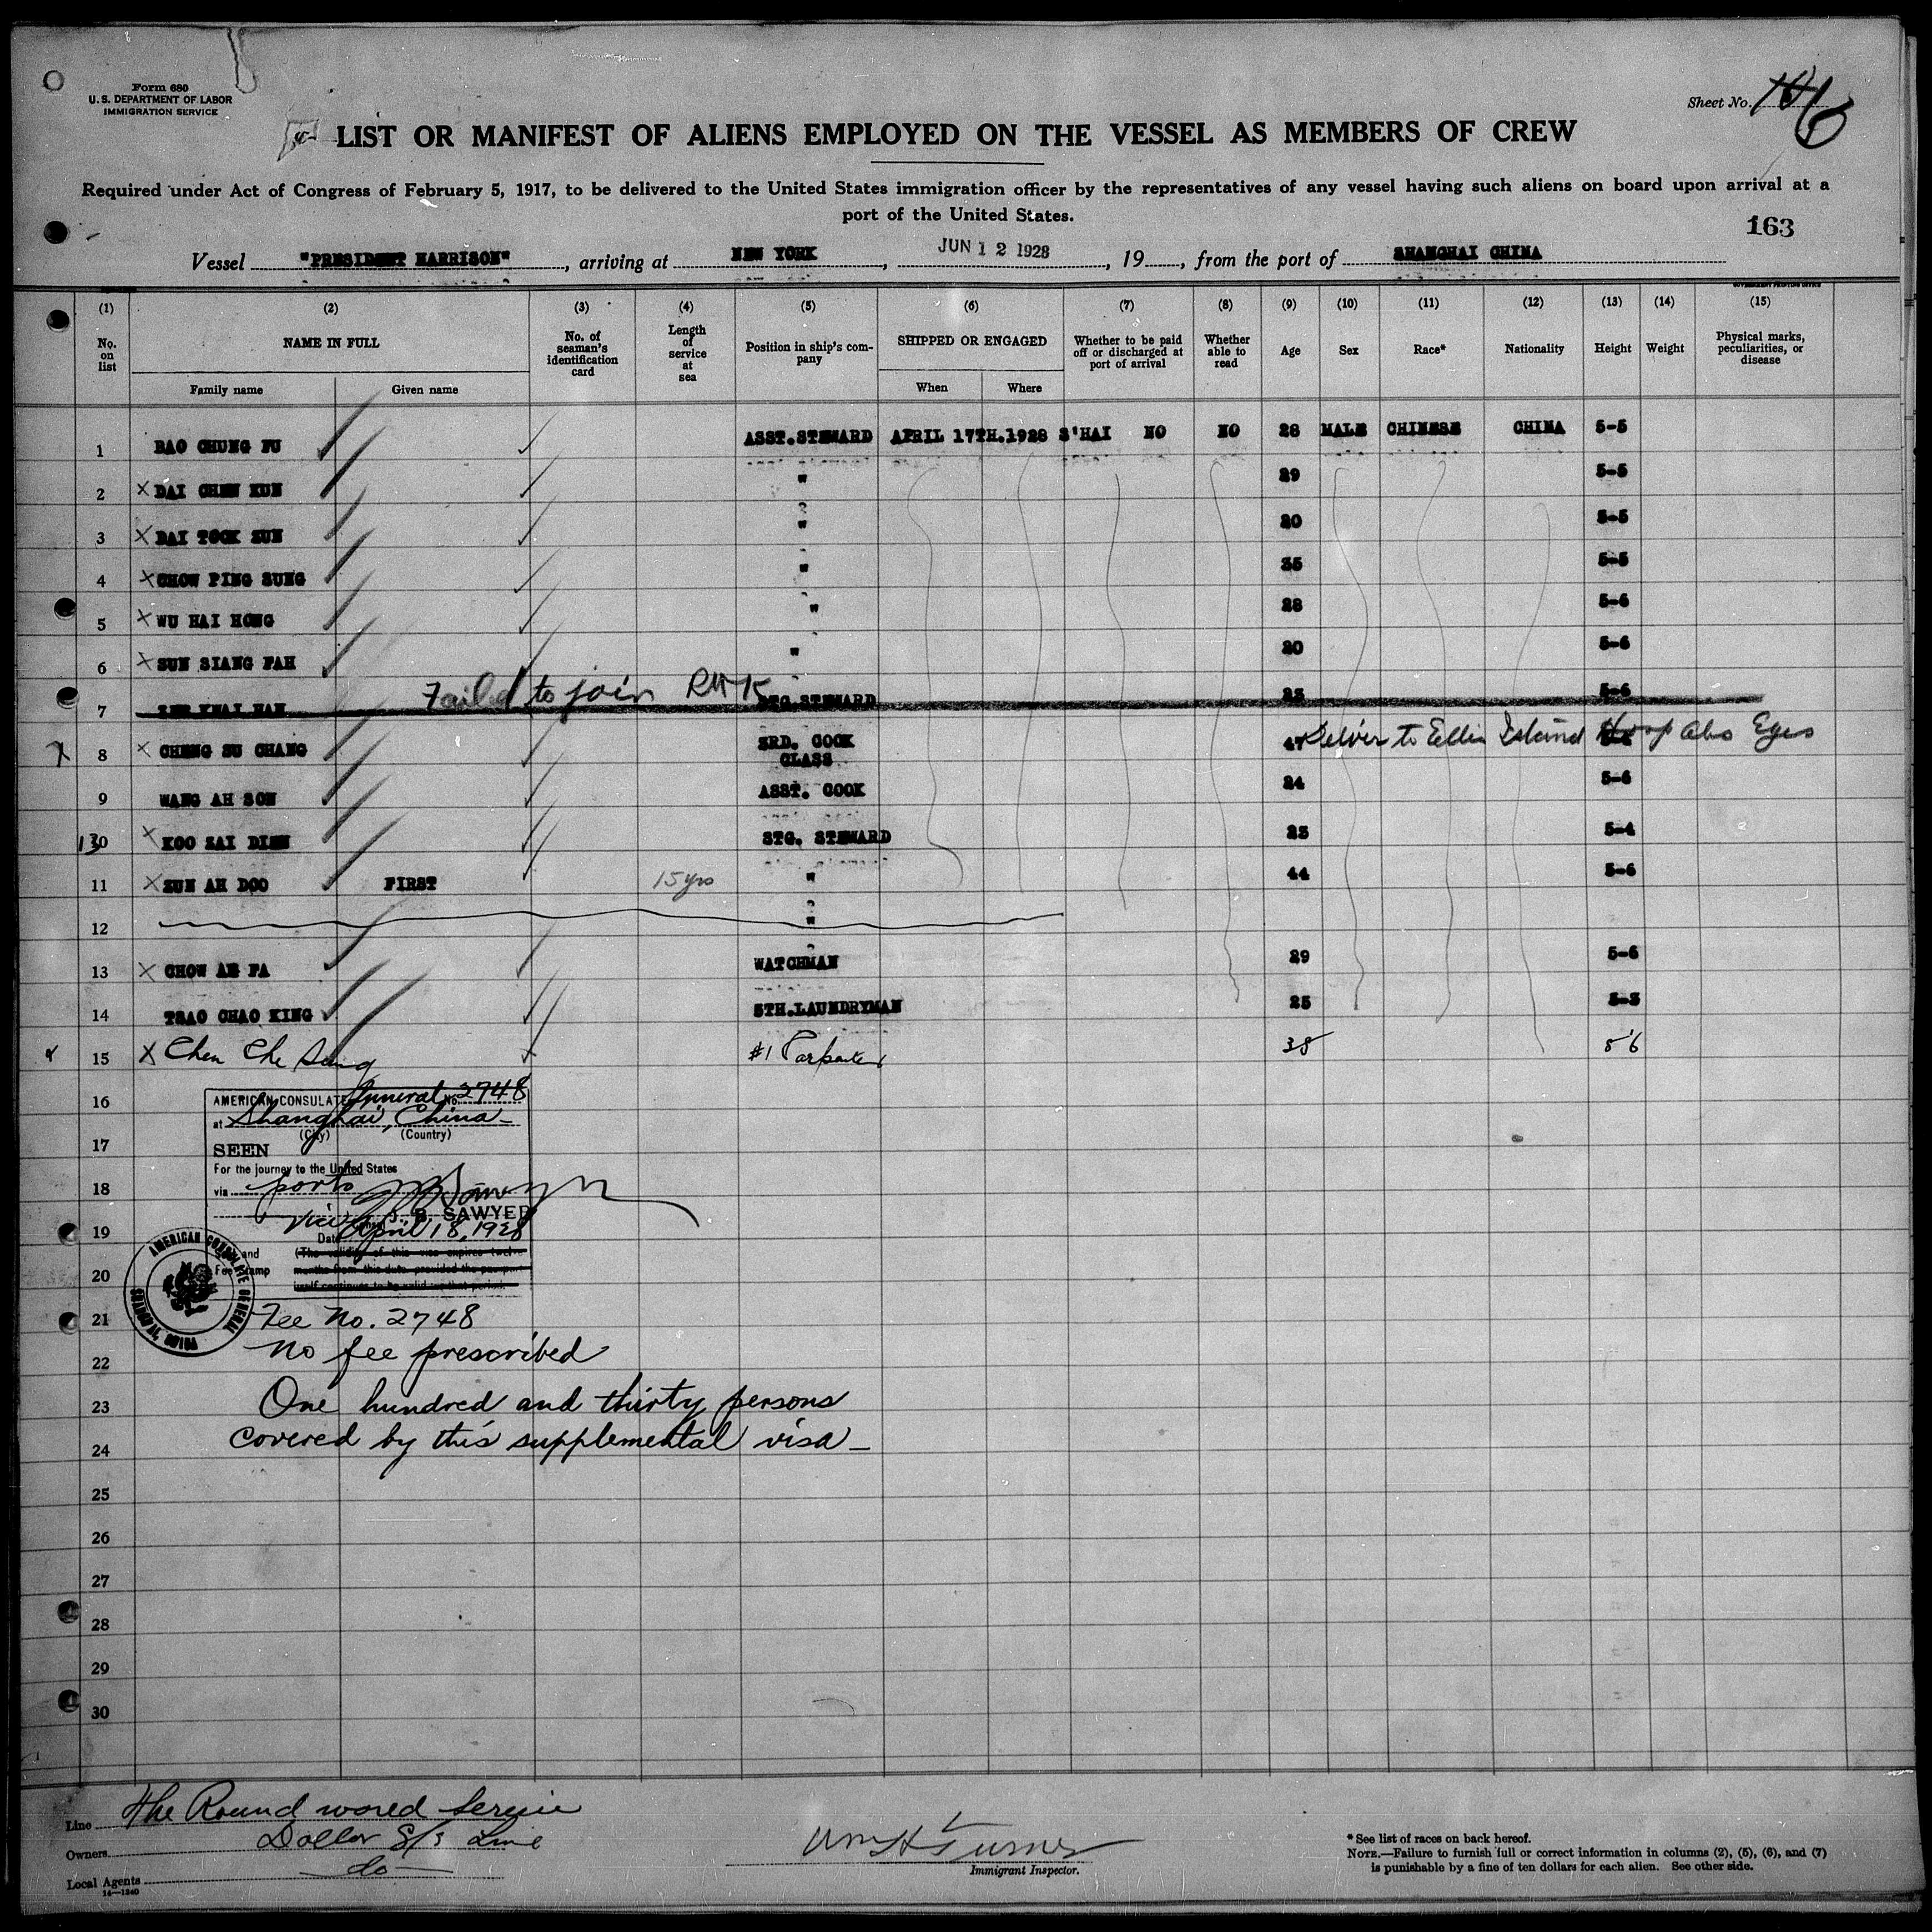 Form 680
U. S. DEPARTMENT OF LABOR
IMMIGRATION SERVICE
Sheet No.
LIST OR MANIFEST OF ALIENS EMPLOYED ON THE VESSEL AS MEMBERS OF CREW
Required under Act of Congress of February 5, 1917, to be delivered to the United States immigration officer by the representatives of any vessel having such aliens on board upon arrival at a
port of the United States.
163
Vessel "PRESIDENT HARRISON", arriving at NEW YORK, JUN 12 1928, 19, from the port of SHANGHAI CHINA
GOVERNMENT PRINTING OFFICE
(1) (2) (3) (4) (5) (6) (7) (8) (9) (10) (11) (12) (13) (14) (15)
No. on list NAME IN FULL No. of seaman's identification card Length of service at sea Position in ship's company SHIPPED OR ENGAGED Whether to be paid off or discharged at port of arrival Whether able to read Age Sex Race* Nationality Height Weight Physical marks, peculiarities, or disease
Family name Given name When Where
1 BAO CHUNG FU ASST.STEWARD APRIL 17TH.1928 S'HAI NO NO 28 MALE CHINESE CHINA 5-5
2 X DAI CHEN KUN " 29 5-5
3 X DAI TSOK ZUN " 20 5-5
4 X CHOW PING SUNG " 35 5-5
5 X WU HAI HONG " 28 5-6
6 X SUN SIANG FAH " 20 5-6
7 KWAI HAN Failed to join STG.STEWARD 23 5-6
X 8 X CHENG SU CHANG 3RD. CLASS COOK 47 Deliver to Ellis Island Hosp also Eyes
9 WANG AH SON ASST. COOK 24 5-6
130 X KOO ZAI DIEN STG. STEWARD 23 5-4
11 X ZUN AH DOO FIRST 15 yrs " 44 5-6
12 "
13 X CHOW AH FA WATCHMAN 29 5-6
14 TSAO CHAO KING 5TH.LAUNDRYMAN 25 5-5
15 X Chen Che Sung #1 Carpenter 38 5 6
16
17
18
19
20
21
22
23
24
25
26
27
28
29
30
AMERICAN CONSULATE General No. 2748
at Shanghai, China
(City) (Country)
SEEN
For the journey to the United States
via ports
J. B. SAWYER
Vice Consul
Date April 18, 1928
(The validity of this visa expires twelve
months from this date provided the passport
itself continues to be valid for that period.
Seal and
Fee Stamp
AMERICAN CONSULATE GENERAL
SHANGHAI, CHINA
Fee No. 2748
No fee prescribed
One hundred and thirty persons
covered by this supplemental visa
Line The Round world Service
Owners Dollar S/S Line
Local Agents do
14—1240
Wm H Turner
Immigrant Inspector.
* See list of races on back hereof.
NOTE.—Failure to furnish full or correct information in columns (2), (5), (6), and (7)
is punishable by a fine of ten dollars for each alien. See other side.